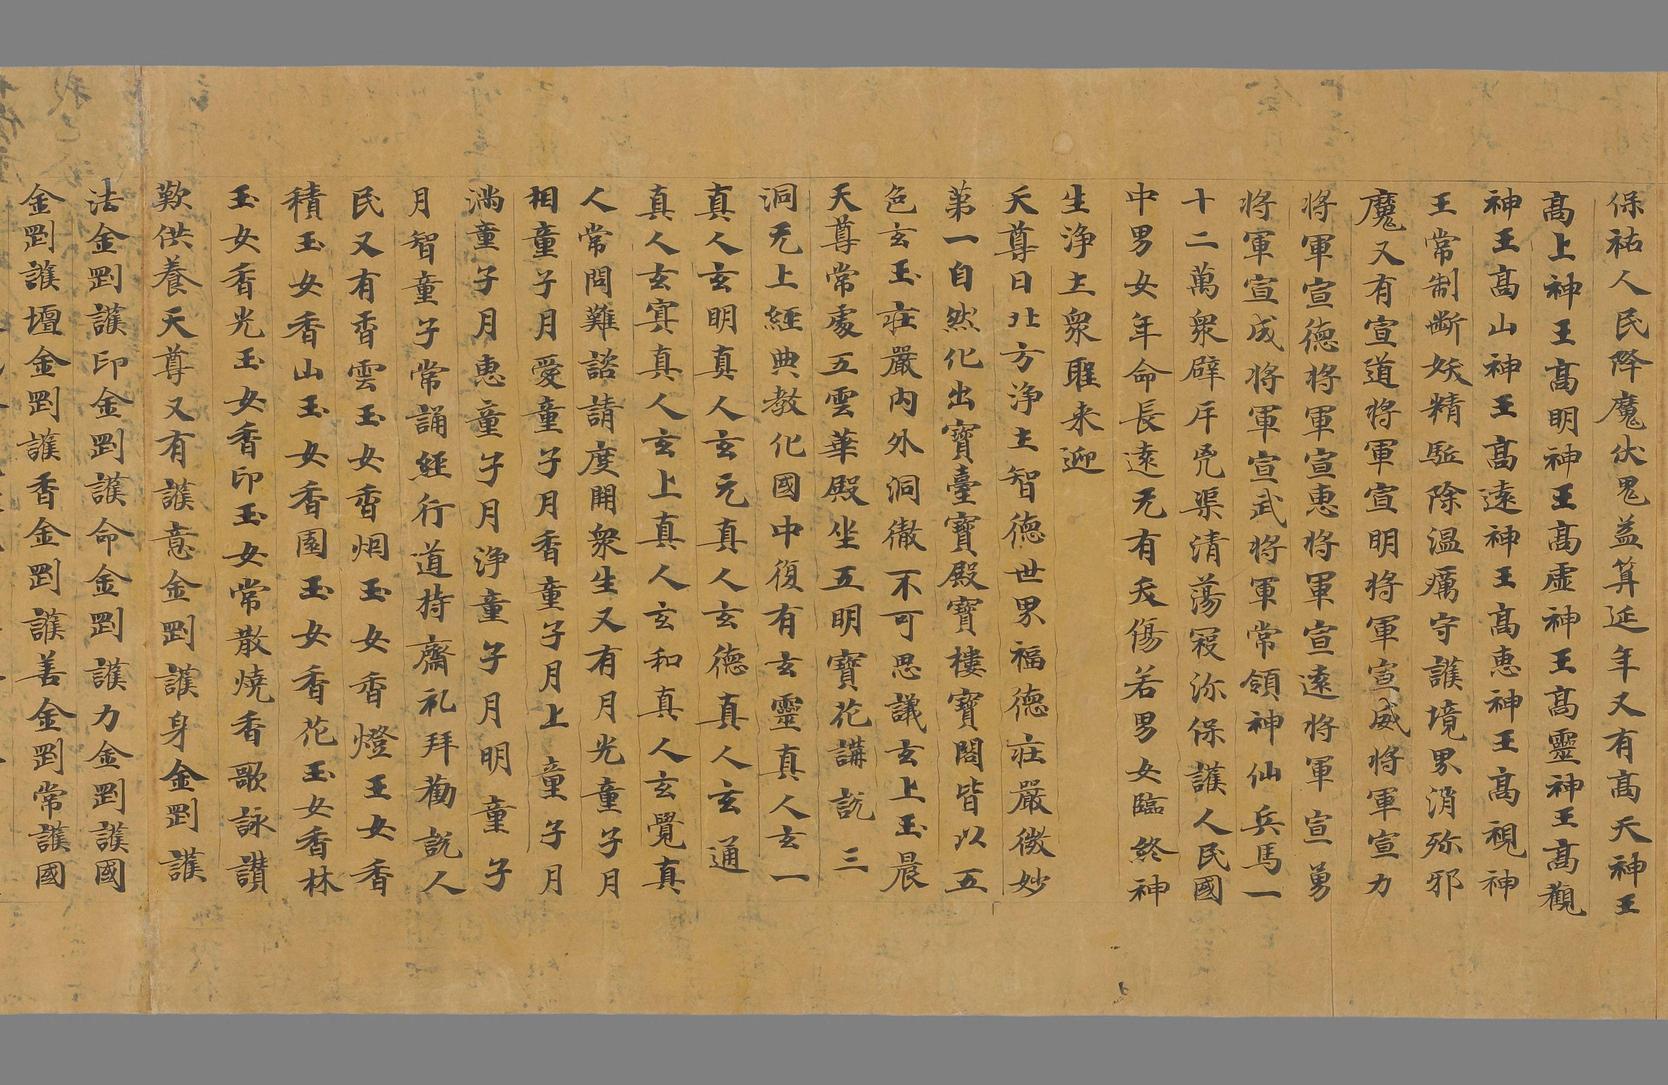 保祐人民降魔伏鬼益筭延年又有髙天神王
髙上神王髙明神王髙虚神王髙靈神王髙觀
神王髙山神王髙逺神王髙惠神王髙視神
王常制断妖精駈除温癘守護境界消弥邪
魔又有宣道将軍宣明将軍宣威将軍宣力
将軍宣德将軍宣惠将軍宣逺将軍宣勇
将軍宣成将軍宣武将軍常領神仙兵馬一
十二萬衆辟斥㐫渠清蕩寇沴保護人民國
中男女年命長逺无有夭傷若男女臨終神
生浄土衆聖来迎
天尊曰北方浄土智德世界福德莊嚴微妙
第一自然化出寳臺寳殿寳樓寳閣皆以五
色玄玉莊嚴内外洞徹不可思議玄上玉晨
天尊常處五雲華殿坐五明寳花講説三
洞无上經典教化國中復有玄靈真人玄一
真人玄明真人玄元真人玄德真人玄通
真人玄寘真人玄上真人玄和真人玄覺真
人常問難諮請度開衆生又有月光童子月
相童子月愛童子月香童子月上童子月
滿童子月惠童子月浄童子月明童子
月智童子常誦經行道持齋礼拜勸説人
民又有香雲玉女香烟玉女香燈玉女香
積玉女香山玉女香園玉女香花玉女香林
玉女香光玉女香印玉女常散燒香歌詠讃
歎供養天尊又有護意金剛護身金剛護
法金剛護印金剛護命金剛護力金剛護國
金剛護壇金剛護香金剛護善金剛常護國